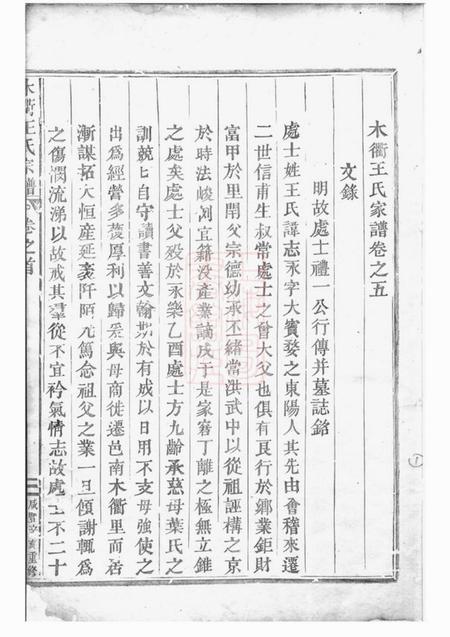 木衢王氏家譜卷之五
文錄
明故處士禮一公行傳并墓誌銘
處士姓王氏諱志永字大賓婺之東陽人其先由會稽來遷
二世信甫生叔常處士之曾大父也俱有良行於鄉業鉅財
富甲於里閈父宗德幼承不緒常洪武中以從祖誣構之京
於時法峻洌宜籍没產業謫戍于是家窘丁離之極無立錐
之處矣處士父殁於永樂乙酉處士方九齡承慈母葉氏之
訓兢匕自守讀書善文翰期於有成以日用不支母強使之
出爲經營多獲厚利以歸爰與母商徙遷邑南木衢里而居
漸謀拓大恒産延袤阡陌尤篤念祖父之業一旦傾謝輒爲
之傷潤流涕以故戒其羣從不宜衿氣情志故處士不二十
木衢王氏宗譜
卷之首
重修